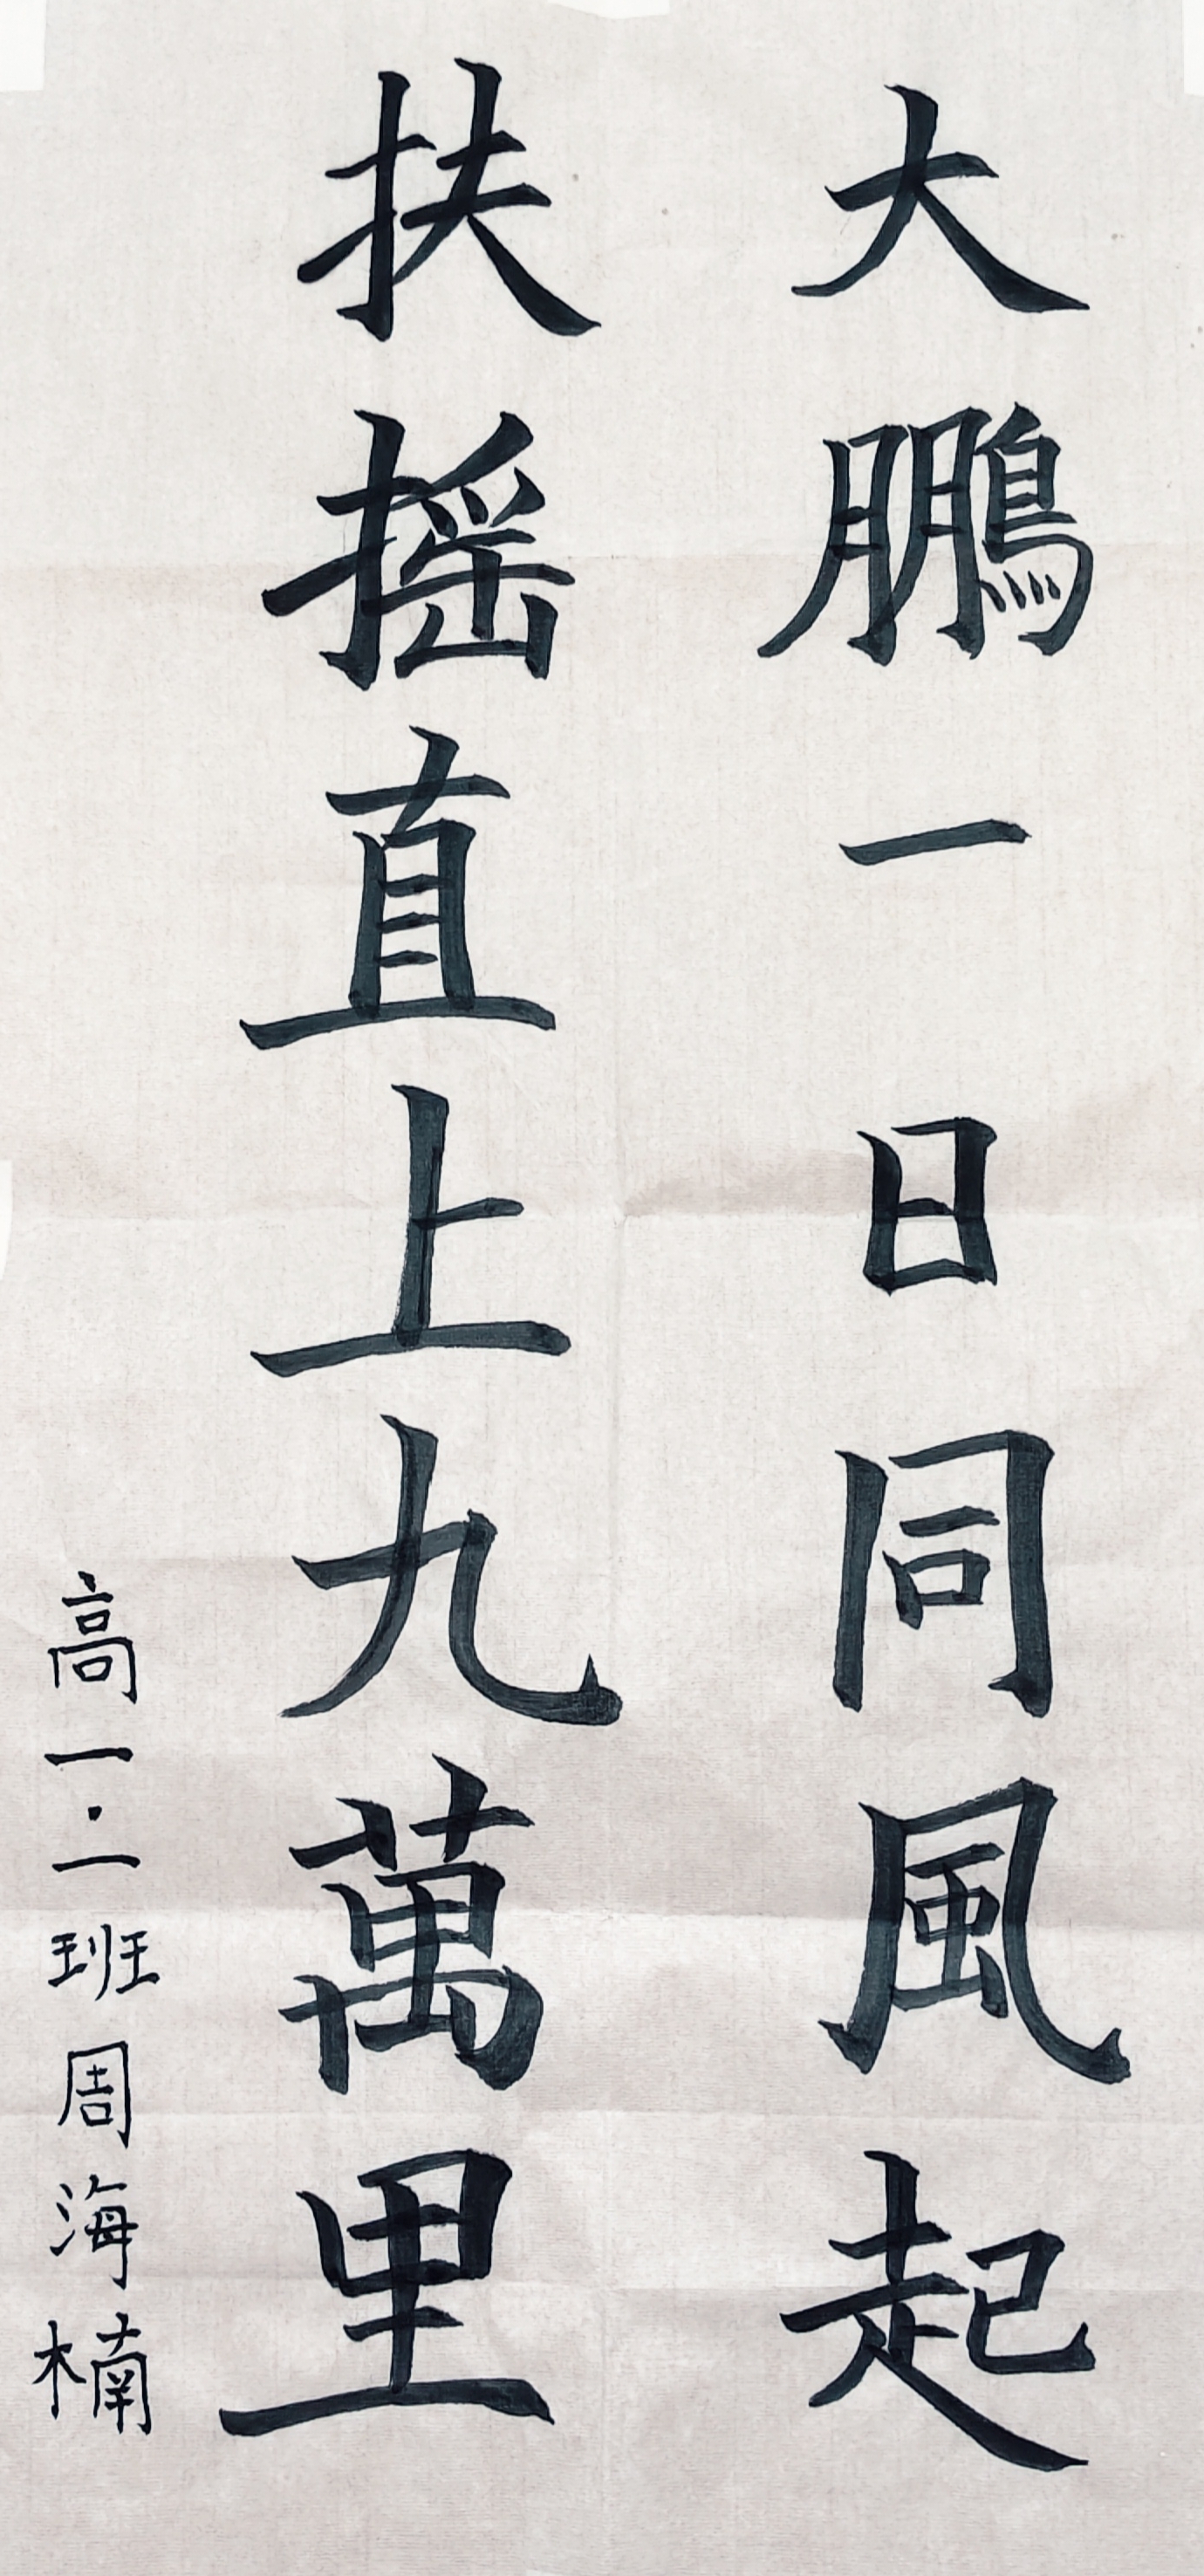 大鵬一日同風起
扶摇直上九萬里
高一·二班周海楠